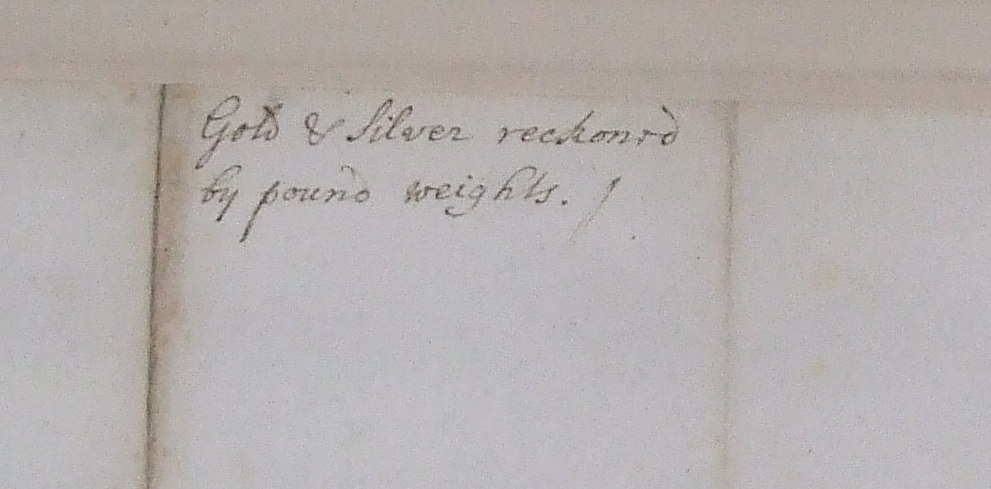 Gold & Silver reckon'd
by pound weights. /